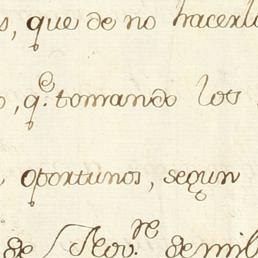 s, que de no hacerlo
o, q.e tomando los
oportunos, segun
de Nov.re de mil